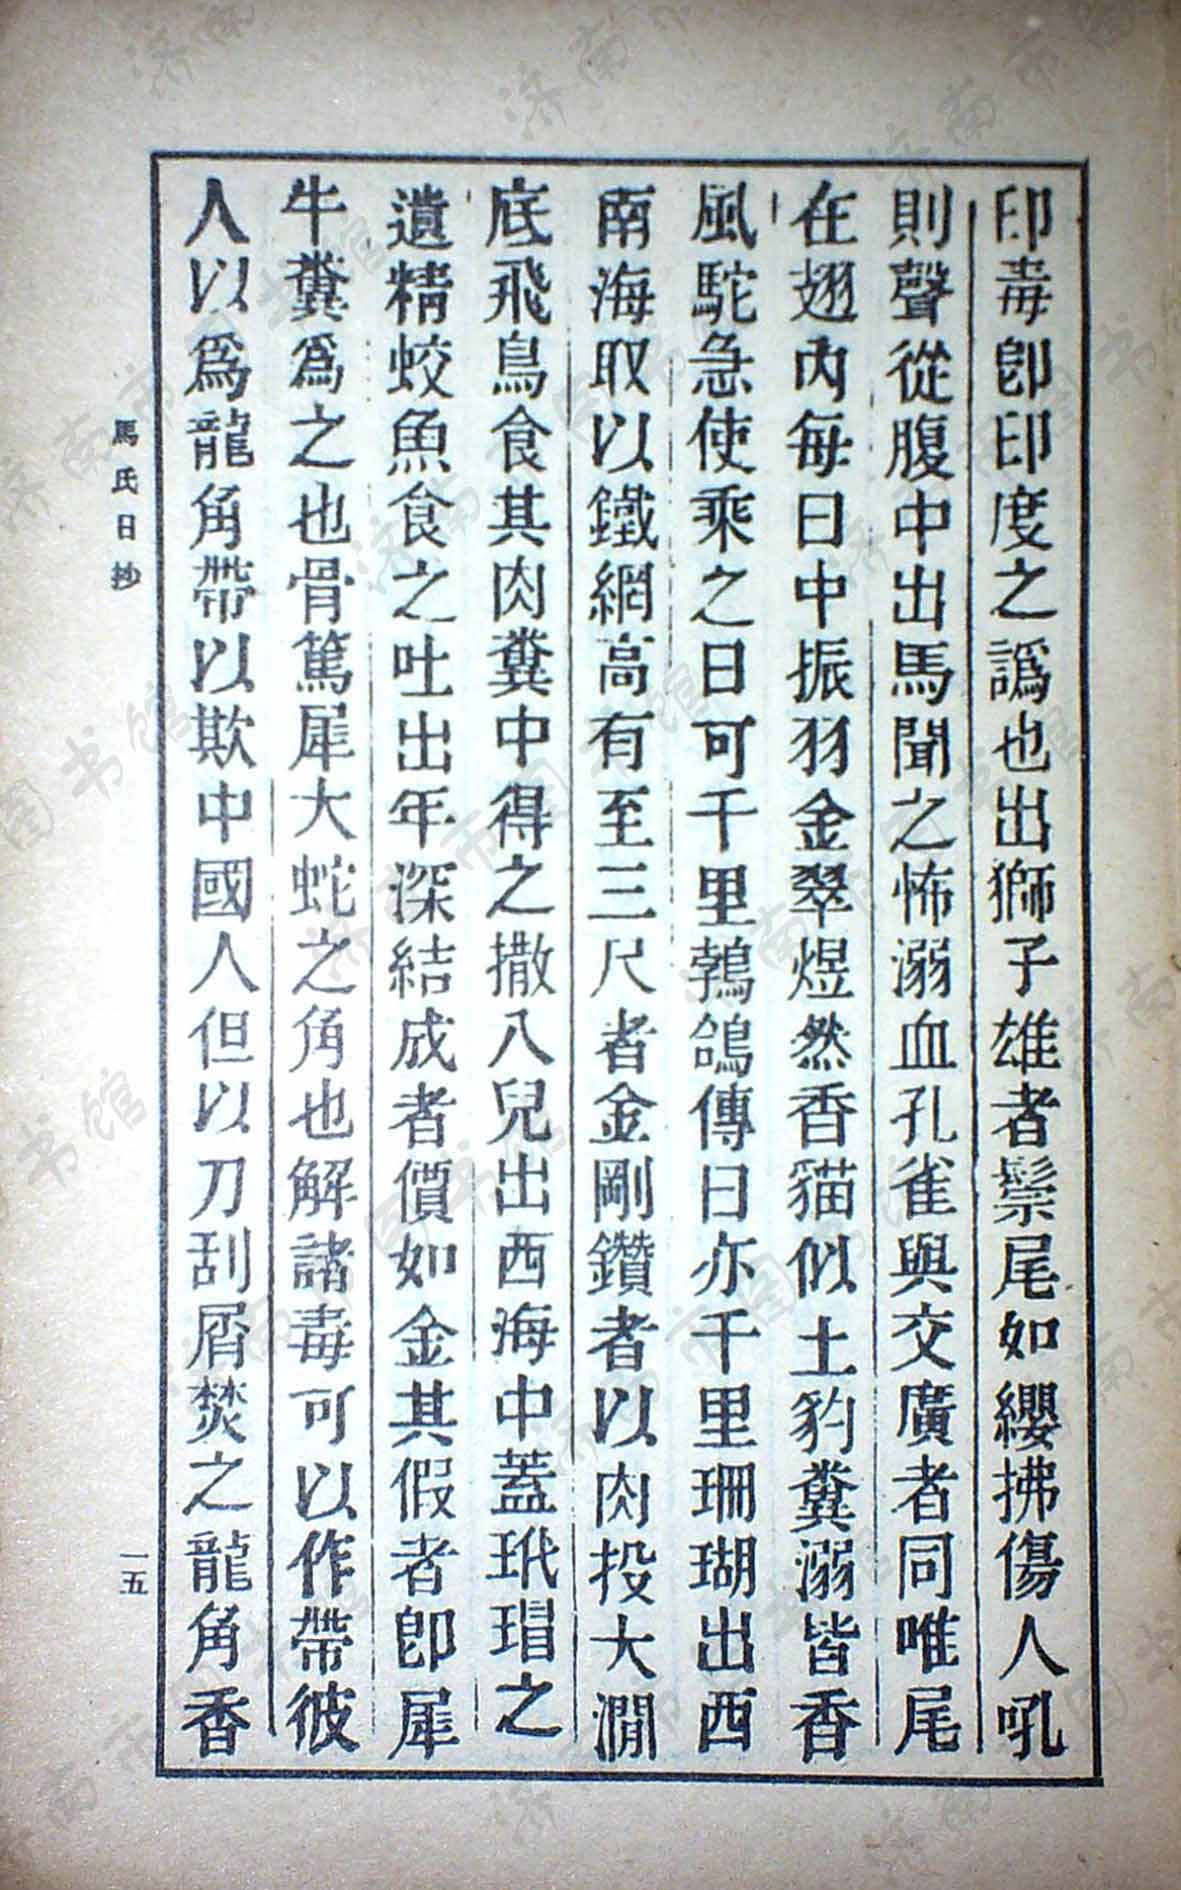 印毒卽印度之譌也出獅子雄者鬃尾如纓拂傷人吼
則聲從腹中出馬聞之怖溺血孔雀與交廣者同唯尾
在翅內每日中振羽金翠煜然香貓似土豹糞溺皆香
風駝急使乘之日可千里鶉鴿傳日亦千里珊瑚出西
南海取以鐵網高有至三尺者金剛鑽者以肉投大澗
底飛鳥食其肉糞中得之撒八兒出西海中蓋玳瑁之
遺精蛟魚食之吐出年深結成者價如金其假者卽犀
牛糞爲之也骨篤犀大蛇之角也解諸毒可以作帶彼
人以爲龍角帶以欺中國人但以刀刮屑焚之龍角香
馬氏日抄
一五
济南市图书馆